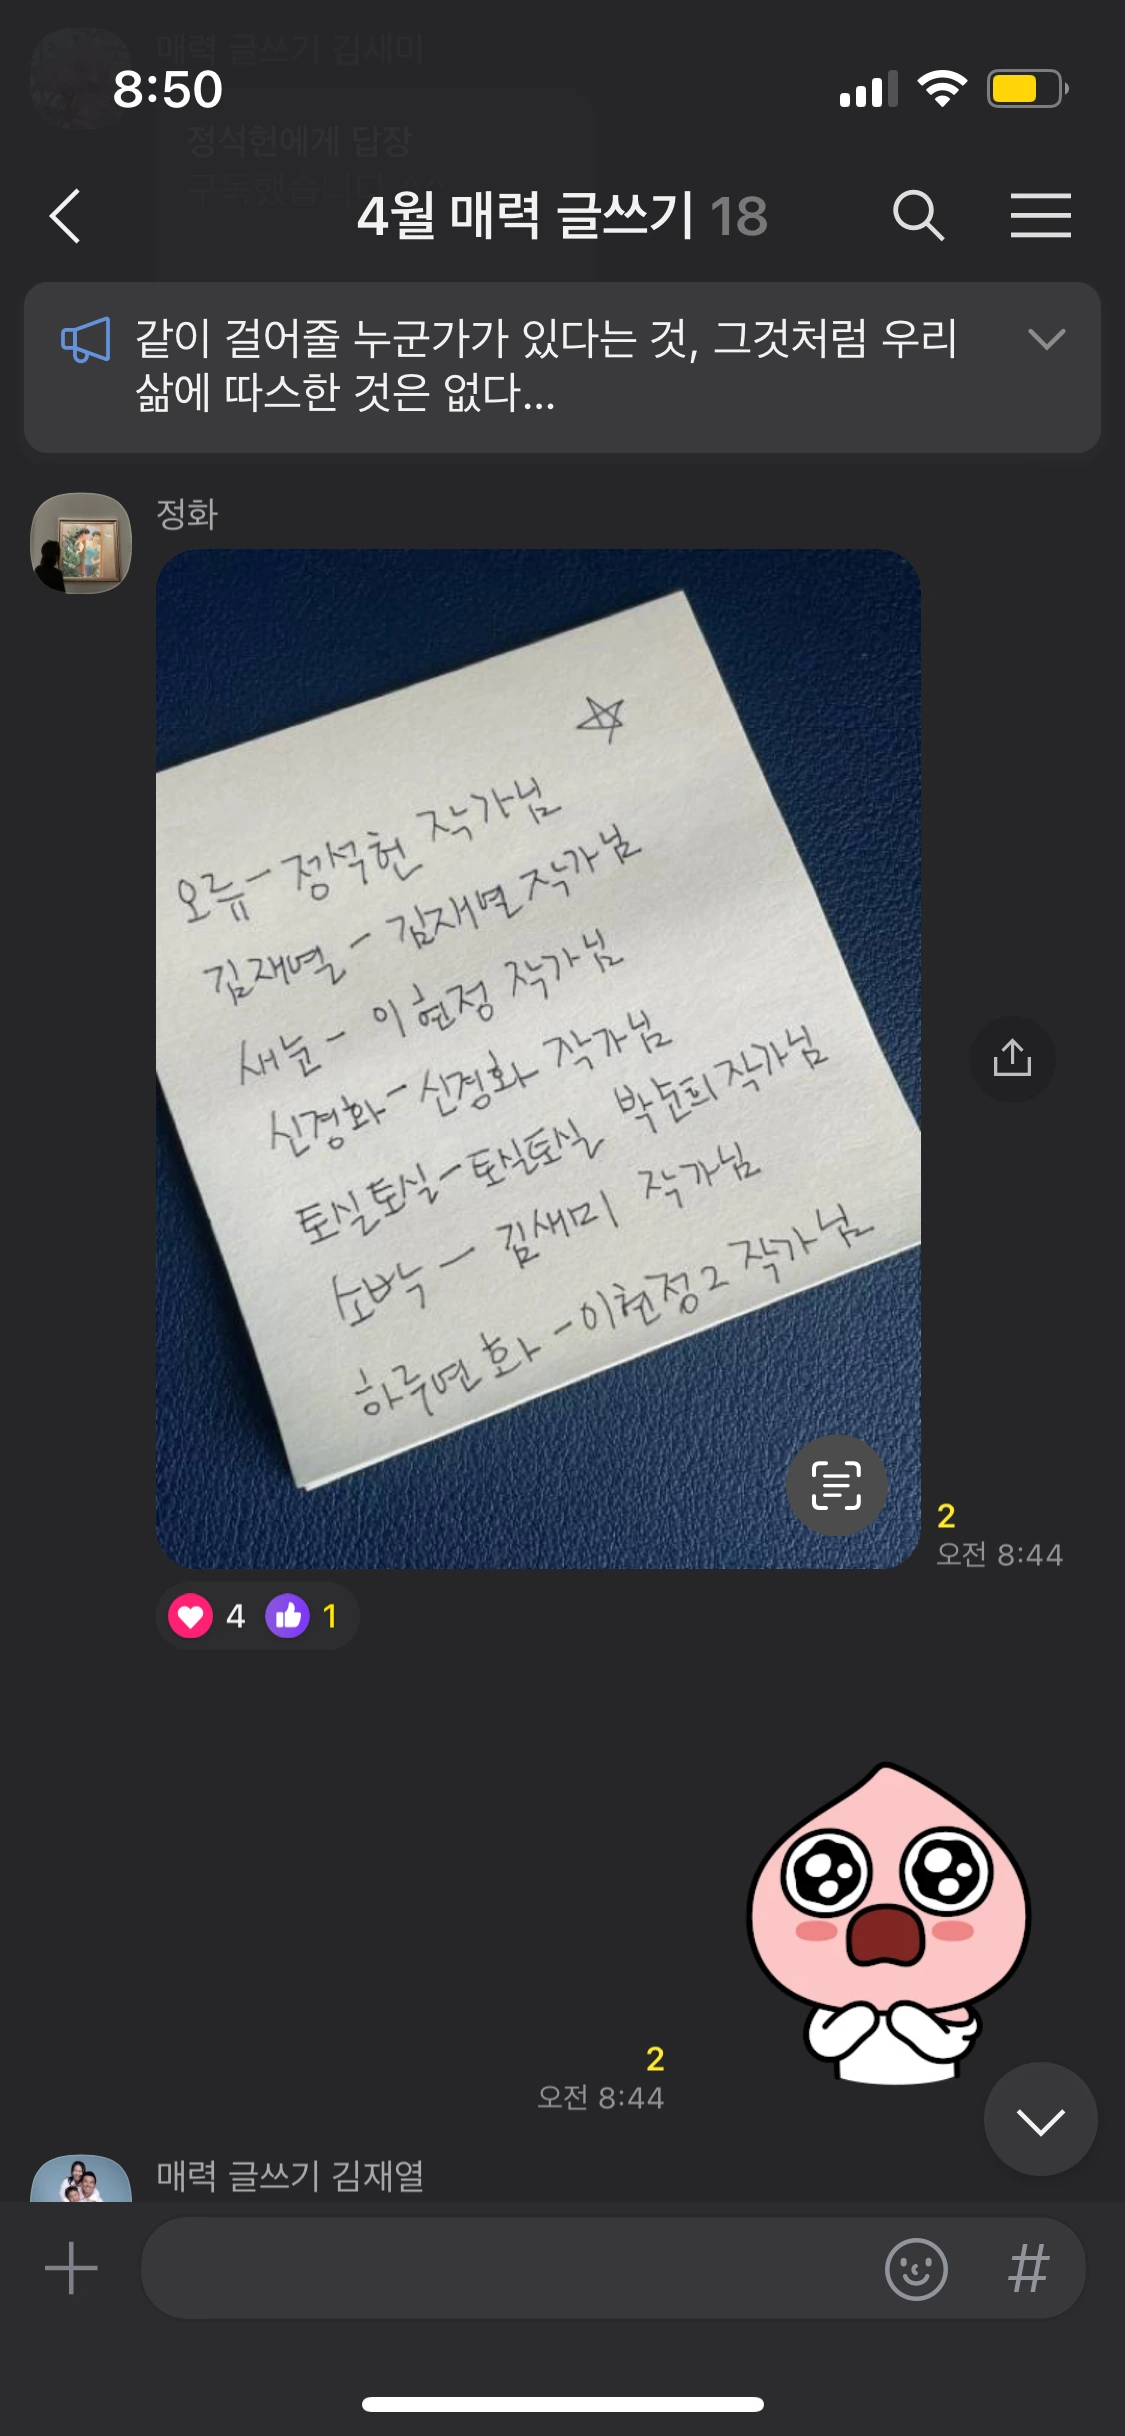 매력 글쓰기 김새미
8:50
정석헌에게 답장
구독했습니다 ^^
4월 매력 글쓰기 18
같이 걸어줄 누군가가 있다는 것, 그것처럼 우리
삶에 따스한 것은 없다...
정화
오류 - 정석헌 작가님
김재열 - 김재열 작가님
새눈 - 이현정 작가님
신경화 - 신경화 작가님
토실토실 - 토실토실 박춘희 작가님
소박 - 김새미 작가님
하루연화 - 이현정2 작가님
2
오전 8:44
4 1
2
오전 8:44
매력 글쓰기 김재열
#